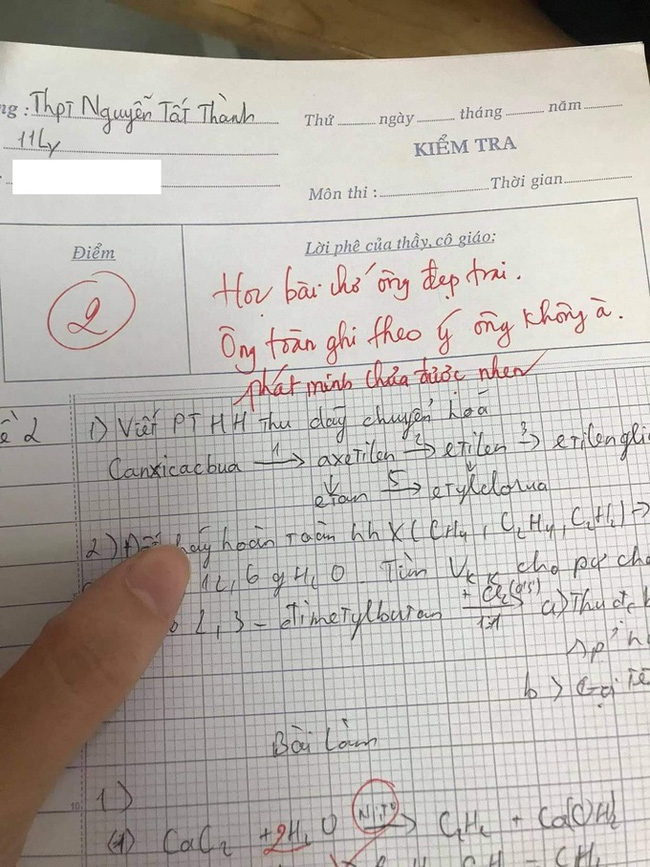 ng : Thpt Nguyễn Tất Thành
11Ly
Thứ ngày tháng năm
KIỂM TRA
Môn thi : Thời gian
Điểm
Lời phê của thầy, cô giáo:
2
Học bài chớ ông đẹp trai.
Ông toàn ghi theo ý ông không à.
phát minh chưa được nhen
ề 2 1) Viết PTHH Thu dãy chuyển hoá
Canxicacbua 1→ axetilen 2→ etilen 3→ etilengli
↓ ↓
etan 5→ etylclorua
2) cháy hoàn toàn hh X ( CH4 , C2H4 , C2H2 ) →
12,6 g H2O . Tìm V cho pư
2,3 - đimetylbutan + Cl2 (a/s) 1:1 → a) Thu đc
b) Gọi tê
Bài làm
1)
(1) CaC2 + 2H2O → C2H2 + Ca(OH)2